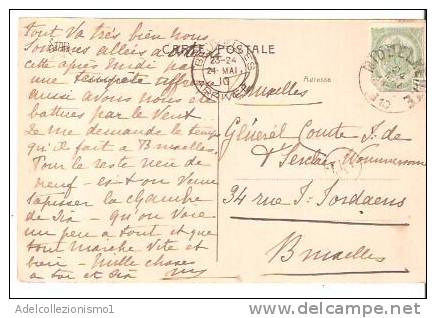 tout va très bien nous
sommes allés à
cette après midi par
une tempête affreuse
aussi avons nous été
battues par le vent
Je me demande le temps
qu'il fait à Bruxelles
Pour le reste rien de
neuf - est on venu
tapisser la chambre
de - qu'on voie
un peu à tout et que
tout marche vite et
bien - Mille choses
à toi et
CARTE POSTALE
Adresse
23-24
24 MAI
10
Bruxelles
Général Comte J. de
t'Serclaes Wommersom
34 rue J. Jordaens
Bruxelles
Adelcollezionismo1
www.delcampe.net